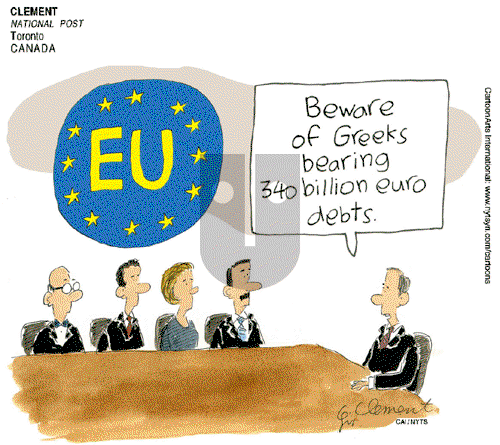 CLEMENT
NATIONAL POST
Toronto
CANADA
EU
Beware
of Greeks
bearing
340 billion euro
debts.
CartoonArts International: www.nytsyn.com/cartoons
G. Clement
CAI/NYTS